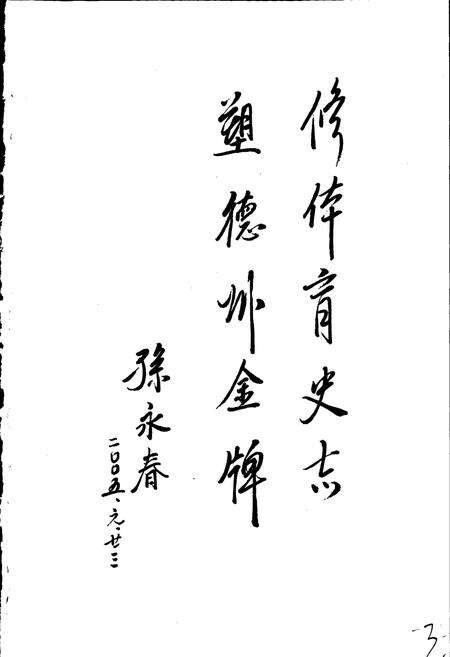 修体育史志
塑德州金牌
孫永春
二00五、元、廿三
3